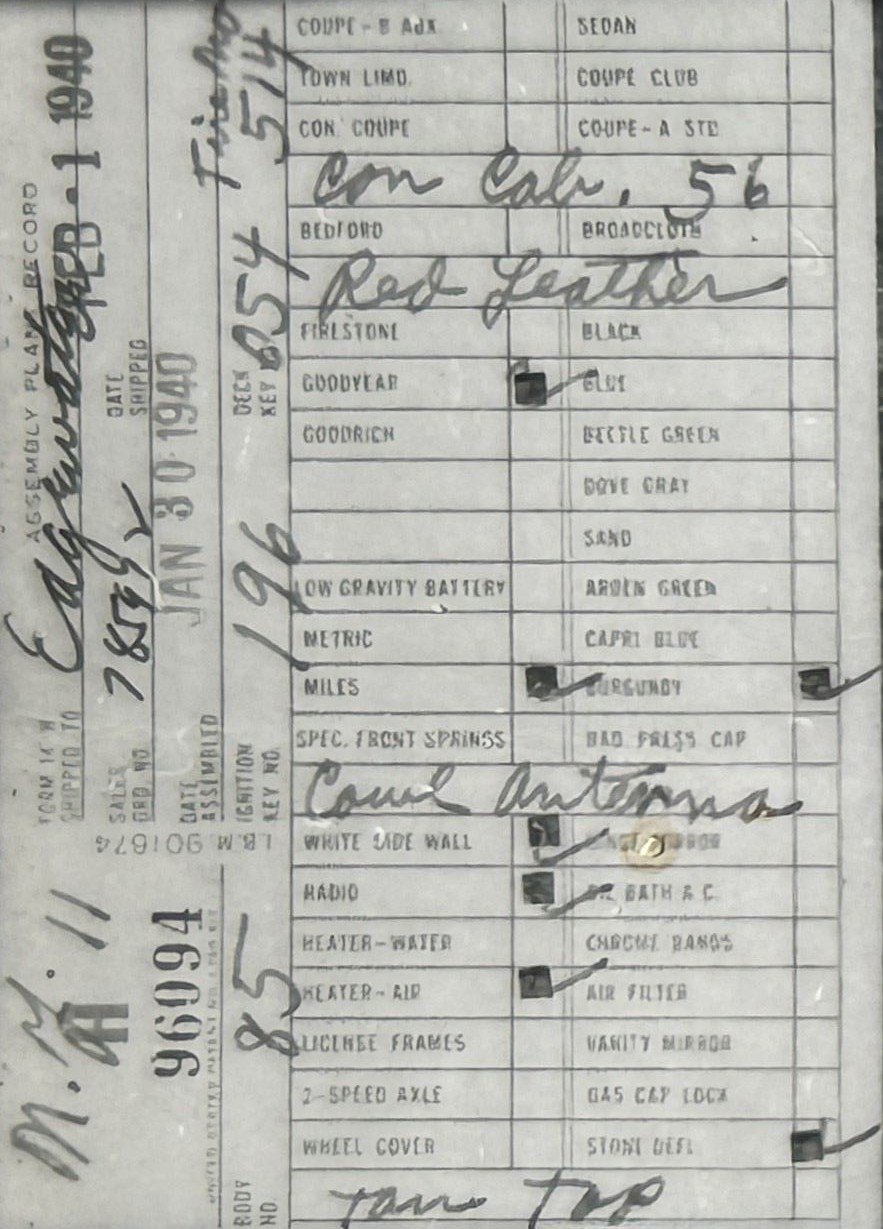 ASSEMBLY PLANT RECORD
FORM 14
SHIPPED TO Edgewater FEB - 1 1940
SALES ORD. NO. DATE SHIPPED
DATE ASSEMBLED JAN 30 1940
IGNITION KEY NO. 196 DECK KEY 054 514
L.B.M. 901674
M. Y. 11
H
96094
BODY NO. 85
COUPE - B AUX. SEDAN
TOWN LIMO. COUPE CLUB
CON. COUPE COUPE - A STD
Con Cab. 56
BEDFORD BROADCLOTH
Red Leather
FIRESTONE BLACK
GOODYEAR BLUE
GOODRICH BEETLE GREEN
DOVE GRAY
SAND
LOW GRAVITY BATTERY ARDEN GREEN
METRIC CAPRI BLUE
MILES BURGUNDY
SPEC. FRONT SPRINGS RAD PRESS CAP
Cowl Antenna
WHITE SIDE WALL
RADIO OIL BATH A.C.
HEATER - WATER CHROME BANDS
HEATER - AIR AIR FILTER
LICENSE FRAMES VANITY MIRROR
2-SPEED AXLE GAS CAP LOCK
WHEEL COVER STONE DEFL
Tan Top